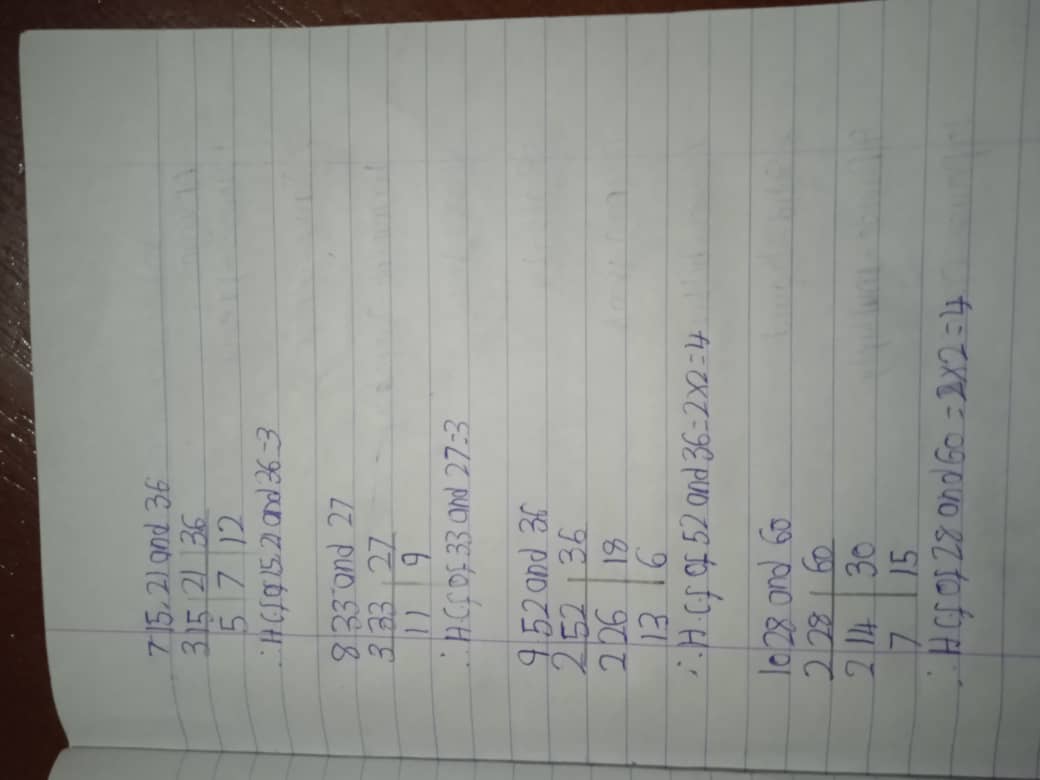 7 15, 21 and 36
3 15 21 36
5 7 12
∴ H Cf of 15, 21 and 36=3
8 33 and 27
3 33 27
11 9
∴ H Cf of 33 and 27=3
9 52 and 36
2 52 36
2 26 18
13 6
∴ H.Cf of 52 and 36=2x2=4
10 28 and 60
2 28 60
2 14 30
7 15
∴ H Cf of 28 and 60=2x2=4